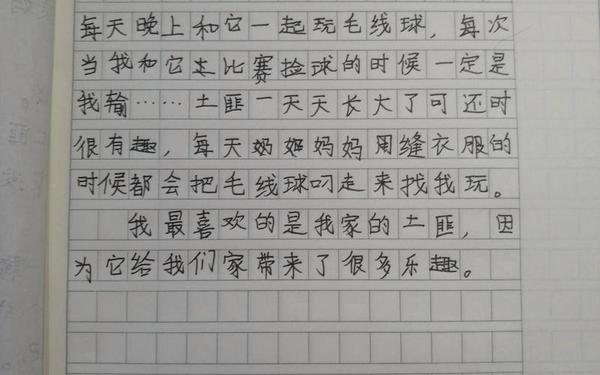 每天晚上和它一起玩毛线球，每次
当我和它去比赛捡球的时候一定是
我输……土匪一天天长大了可还时
很有趣，每天奶奶妈妈用缝衣服的
时候都会把毛线球叼走来找我玩。
我最喜欢的是我家的土匪，因
为它给我们家带来了很多乐趣。